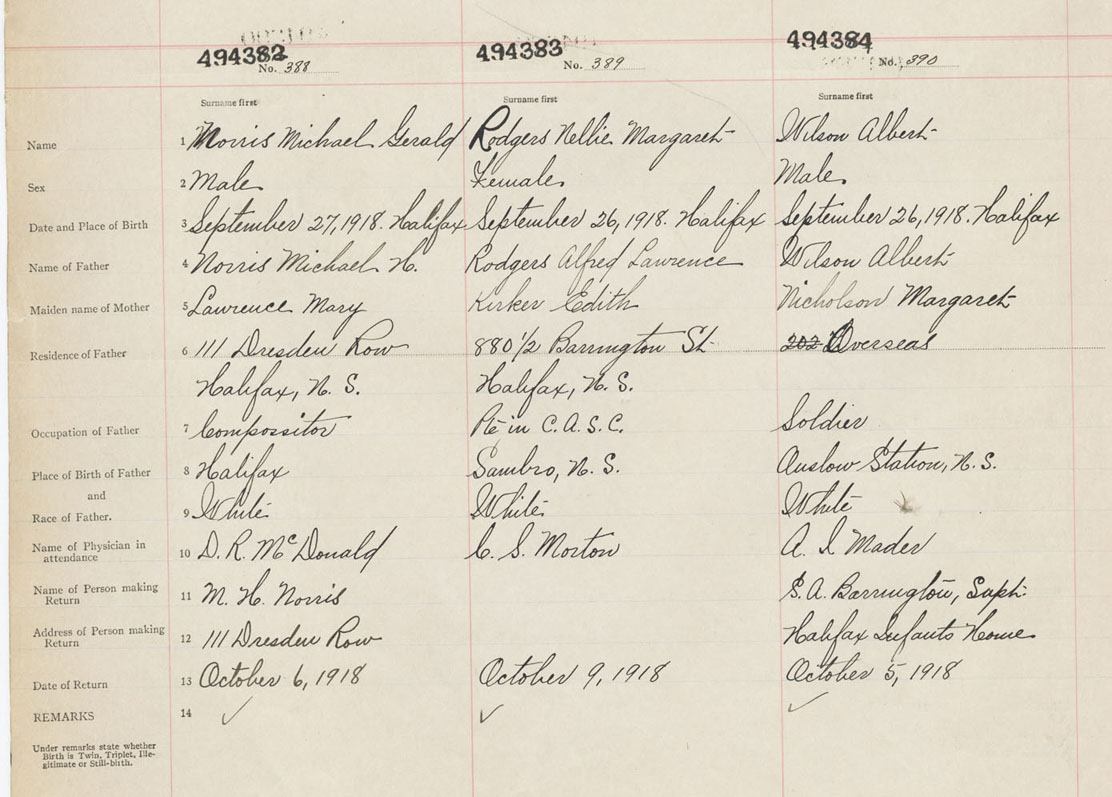 494382 494383 494384
No. 388 No. 389 No. 390
Surname first Surname first Surname first
Name 1 Norris Michael Gerald Rodgers Nellie Margaret Wilson Albert
Sex 2 Male Female Male
Date and Place of Birth 3 September 27, 1918. Halifax September 26, 1918. Halifax September 26, 1918. Halifax
Name of Father 4 Norris Michael H. Rodgers Alfred Lawrence Wilson Albert
Maiden name of Mother 5 Lawrence Mary Kirker Edith Nicholson Margaret
Residence of Father 6 111 Dresden Row 880 1/2 Barrington St. 202 Overseas
Halifax, N. S. Halifax, N. S.
Occupation of Father 7 Compossitor Pte in C. A. S. C. Soldier
Place of Birth of Father 8 Halifax Sambro, N. S. Onslow Station, N. S.
and
Race of Father. 9 White White White
Name of Physician in attendance 10 D. R. McDonald C. S. Morton A. I. Mader
Name of Person making Return 11 M. H. Norris S. A. Barrington, Supt.
Address of Person making Return 12 111 Dresden Row Halifax Infants Home
Date of Return 13 October 6, 1918 October 9, 1918 October 5, 1918
REMARKS 14 ✓ ✓ ✓
Under remarks state whether
Birth is Twin, Triplet, Ille-
gitimate or Still-birth.